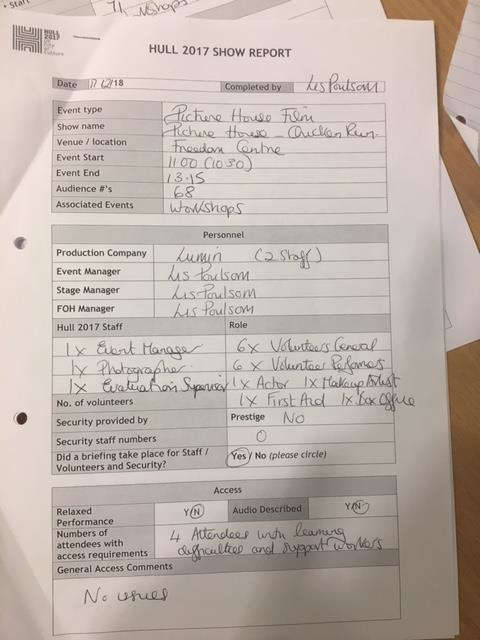 Workshops
HULL
2017
HULL 2017 SHOW REPORT
Date /18 Completed by Lis Poulsom
Event type Picture House Film
Show name Picture House - Chicken Run
Venue / location Freedom Centre
Event Start 1100 (1030)
Event End 13.15
Audience #'s 68
Associated Events Workshops
Personnel
Production Company Lumin (2 Staff)
Event Manager Lis Poulsom
Stage Manager Lis Poulsom
FOH Manager Lis Poulsom
Hull 2017 Staff Role
1x Event Manager 6x Volunteers General
1x Photographer 6x Volunteer
1x Evaluation Supervisor 1x Actor 1x Makeup Artist
No. of volunteers 1x First Aid 1x Box Office
Security provided by Prestige No
Security staff numbers 0
Did a briefing take place for Staff / Yes / No (please circle)
Volunteers and Security?
Access
Relaxed Y/N Audio Described Y/N
Performance
Numbers of 4 Attendees with learning
attendees with difficulties and support workers
access requirements
General Access Comments
No issues